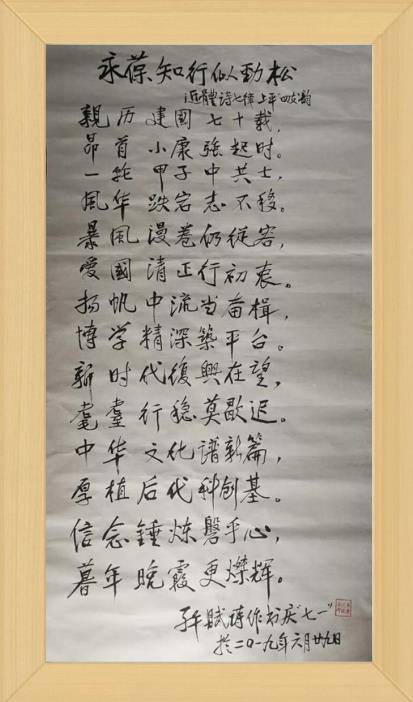 永葆知行似劲松
近體诗七律上平"四支韵
親历建國七十载,
昂首小康强起时。
一轮甲子中共士,
風华跌宕志不移。
暴風漫卷仍從容,
爱國清正行初衷。
扬帆中流当奋楫,
博学精深築平台。
新时代復興在望,
耄耋行稳莫歇迟。
中华文化谱新篇,
厚植后代科创基。
信念锤炼磐乎心,
暮年晚霞更燦辉。
子午賦诗作书庆"七一"
於二〇一九年六月廿九日